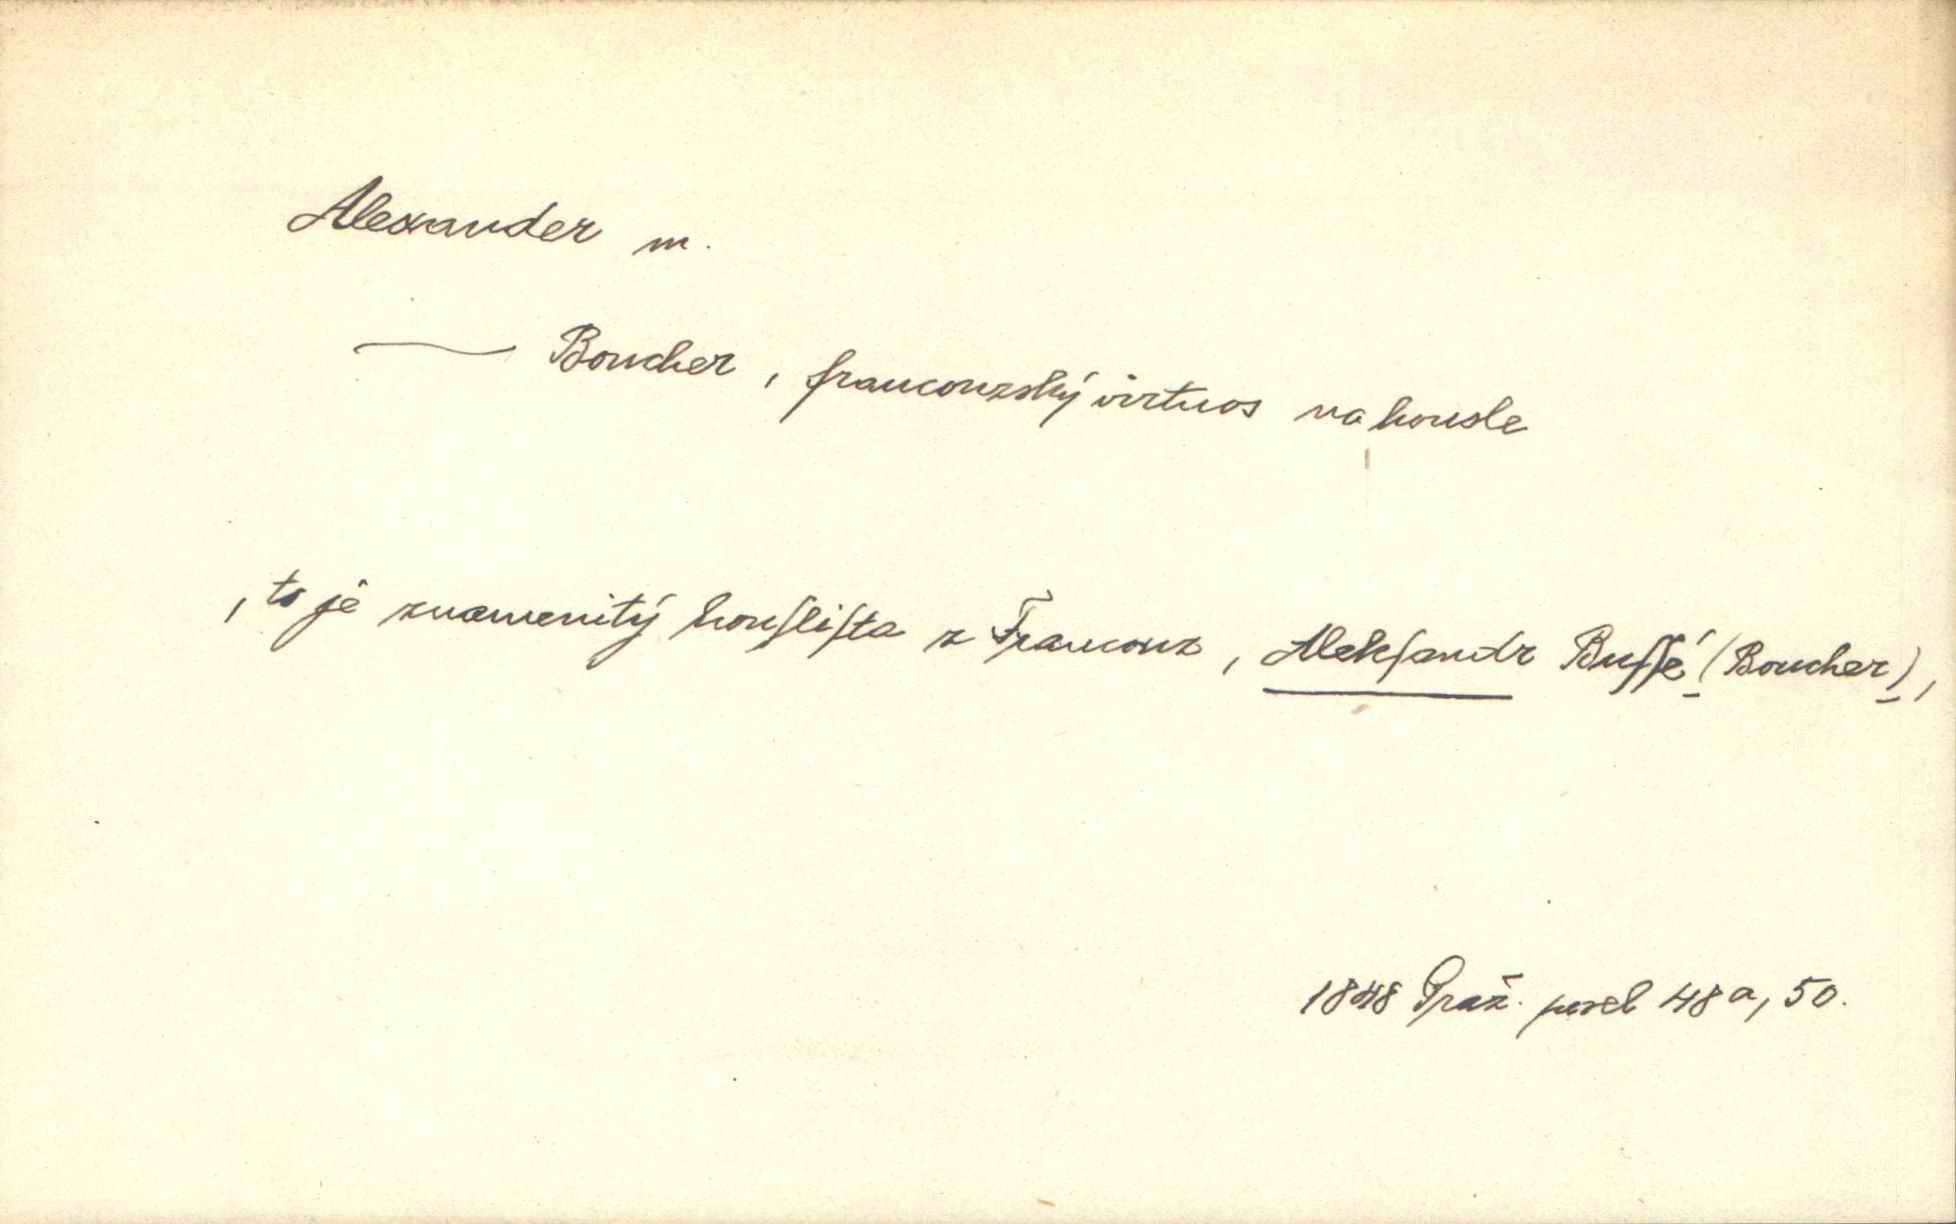 Alexander m.
— Boucher, francouzský virtuos na housle
, to je znamenitý houſliſta z Francouz, Alekſandr Buſſé (Boucher),
1848 Praž. posel 48a, 50.